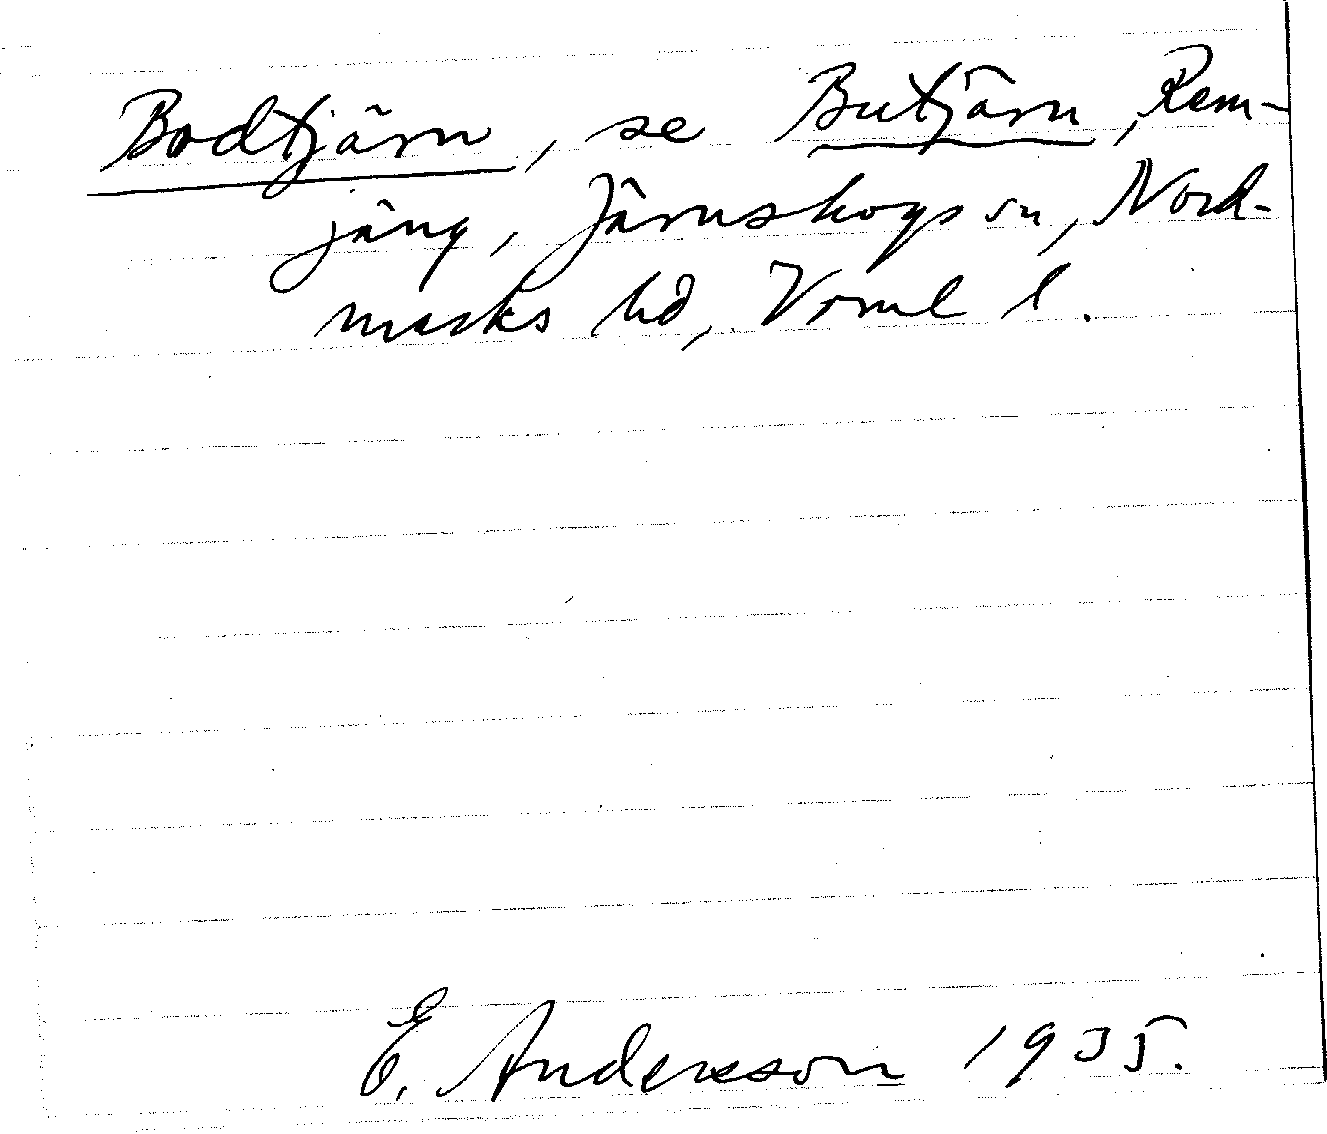 Bodtjärn, se Butjärn, Rem-
jäng, Järnskogs sn, Nord-
marks hd, Vrml l.
E. Andersson 1935.